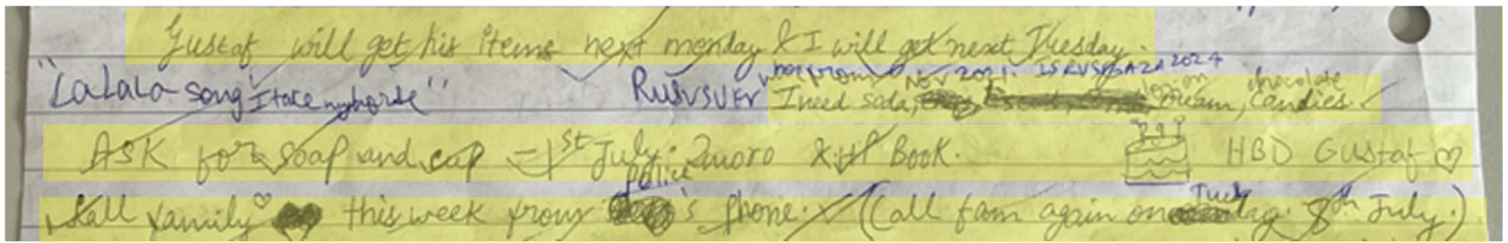 Gustaf will get his items next monday & I will get next Tuesday.
"LaLaLa song I take my horse" RUSVSUKr war from Nov 2021. ISRVSGAZA 2024
I need soda, lotion cream, chocolate candies.
ASK for soap and cup - 1st July. 2moro HP BOOK. HBD Gustaf ♡
call family ♡ this week from police's phone. (Call fam again on Tuesday 8th July.)